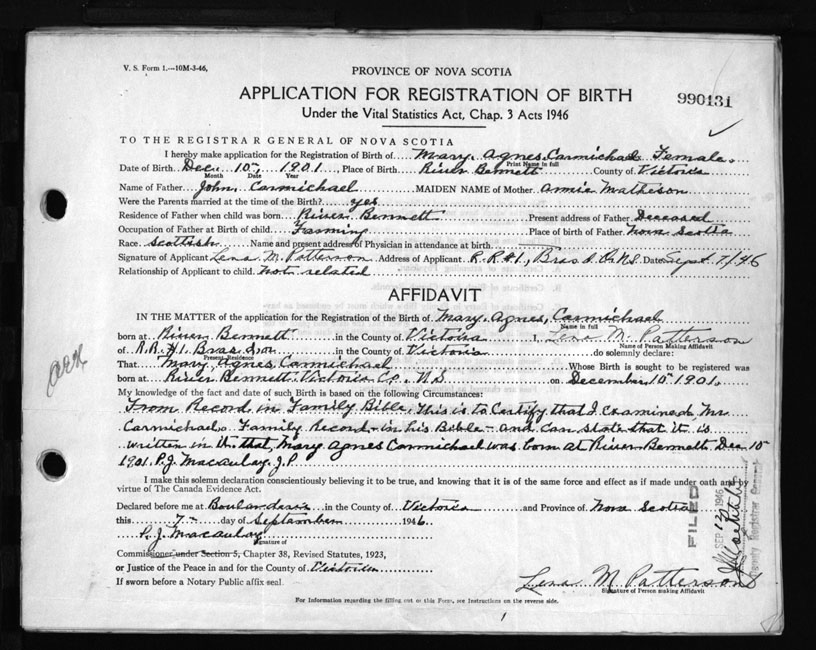 V. S. Form 1.—10M-3-46.
PROVINCE OF NOVA SCOTIA
APPLICATION FOR REGISTRATION OF BIRTH
990131
Under the Vital Statistics Act, Chap. 3 Acts 1946
TO THE REGISTRAR GENERAL OF NOVA SCOTIA
I hereby make application for the Registration of Birth of Mary Agnes Carmichael Female
Print Name in full
Date of Birth Dec. 10, 1901 Place of Birth River Bennett County of Victoria
Month Date Year
Name of Father John Carmichael MAIDEN NAME of Mother Annie Matheson
Were the Parents married at the time of Birth? yes
Residence of Father when child was born River Bennett Present address of Father Deceased
Occupation of Father at Birth of child Farming Place of birth of Father Nova Scotia
Race Scottish Name and present address of Physician in attendance at birth
Signature of Applicant Lena M. Patterson Address of Applicant R.R#1, Bras d'Or N.S. Date Sept. 7/46
Relationship of Applicant to child not related
AFFIDAVIT
IN THE MATTER of the application for the Registration of the Birth of Mary Agnes, Carmichael
Name in full
born at River Bennett in the County of Victoria I, Lena M Patterson
Name of Person Making Affidavit
of R.R. #1. Bras d'or in the County of Victoria do solemnly declare:
Present Residence
That Mary Agnes Carmichael Whose Birth is sought to be registered was
born at River Bennett Victoria Co. N.S. on December 10 1901.
My knowledge of the fact and date of such Birth is based on the following Circumstances:
From Record in Family Bible. This is to Certify that I Examined Mr
Carmichael's Family Record in his Bible and can state that it is
written in it that Mary Agnes Carmichael was born at River Bennett Dec 10
1901. P.J. Macaulay. J.P.
I make this solemn declaration conscientiously believing it to be true, and knowing that it is of the same force and effect as if made under oath and by
virtue of The Canada Evidence Act.
Declared before me at Boulardarie in the County of Victoria and Province of Nova Scotia
this 7 day of September 1946.
P. J. Macaulay
Signature of
Commissioner under Section 5, Chapter 38, Revised Statutes, 1923,
or Justice of the Peace in and for the County of Victoria
If sworn before a Notary Public affix seal
Lena M Patterson
Signature of Person making Affidavit
FILED
SEP 12 1946
Deputy Registrar General
For Information regarding the filling out of this Form, see Instructions on the reverse side.